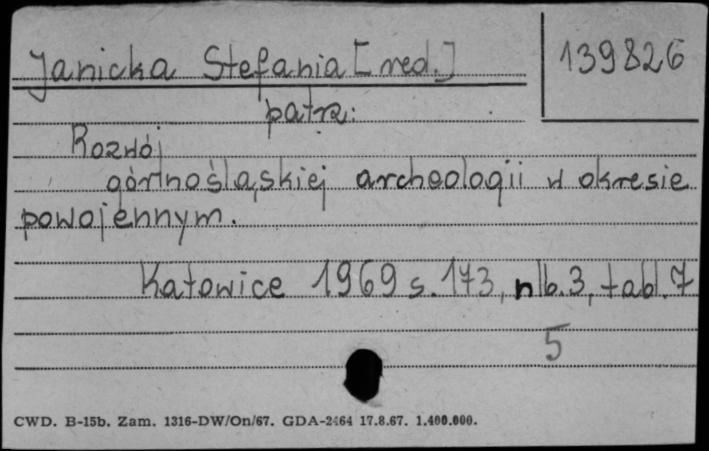 Janicka Stefania [red.]
139826
patrz:
Rozwój
górnośląskiej archeologii w okresie
powojennym.
Katowice 1969 s. 173, nlb. 3, tabl. 7
5
CWD. B-15b. Zam. 1316-DW/On/67. GDA-2464 17.8.67. 1.400.000.